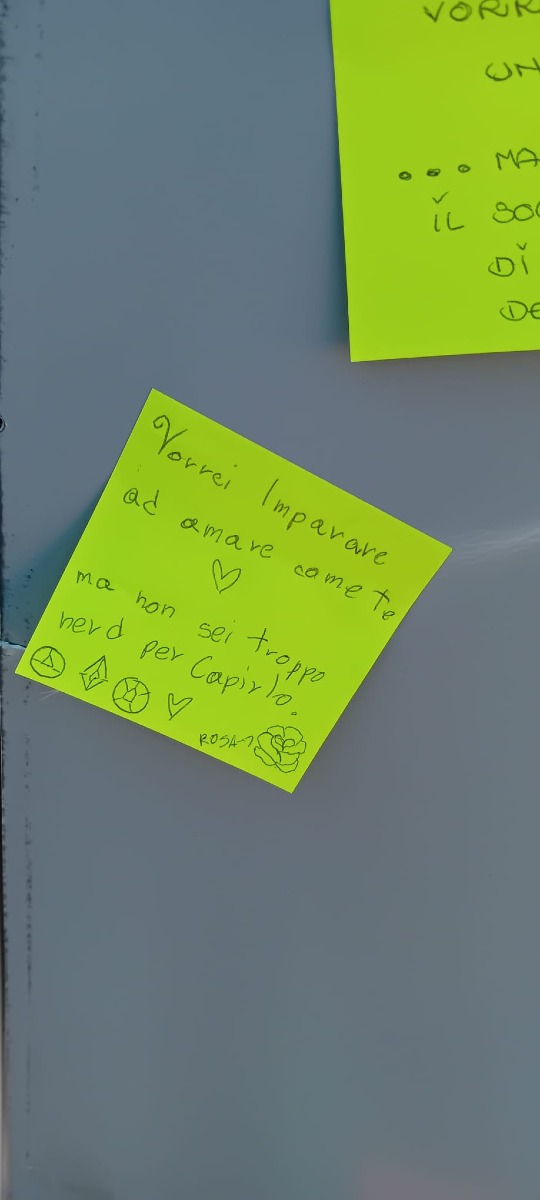 VORR
UN
... MA
IL SO
DI
DE
Vorrei Imparare
ad amare come te
ma non sei troppo
nerd per Capirlo.
ROSA